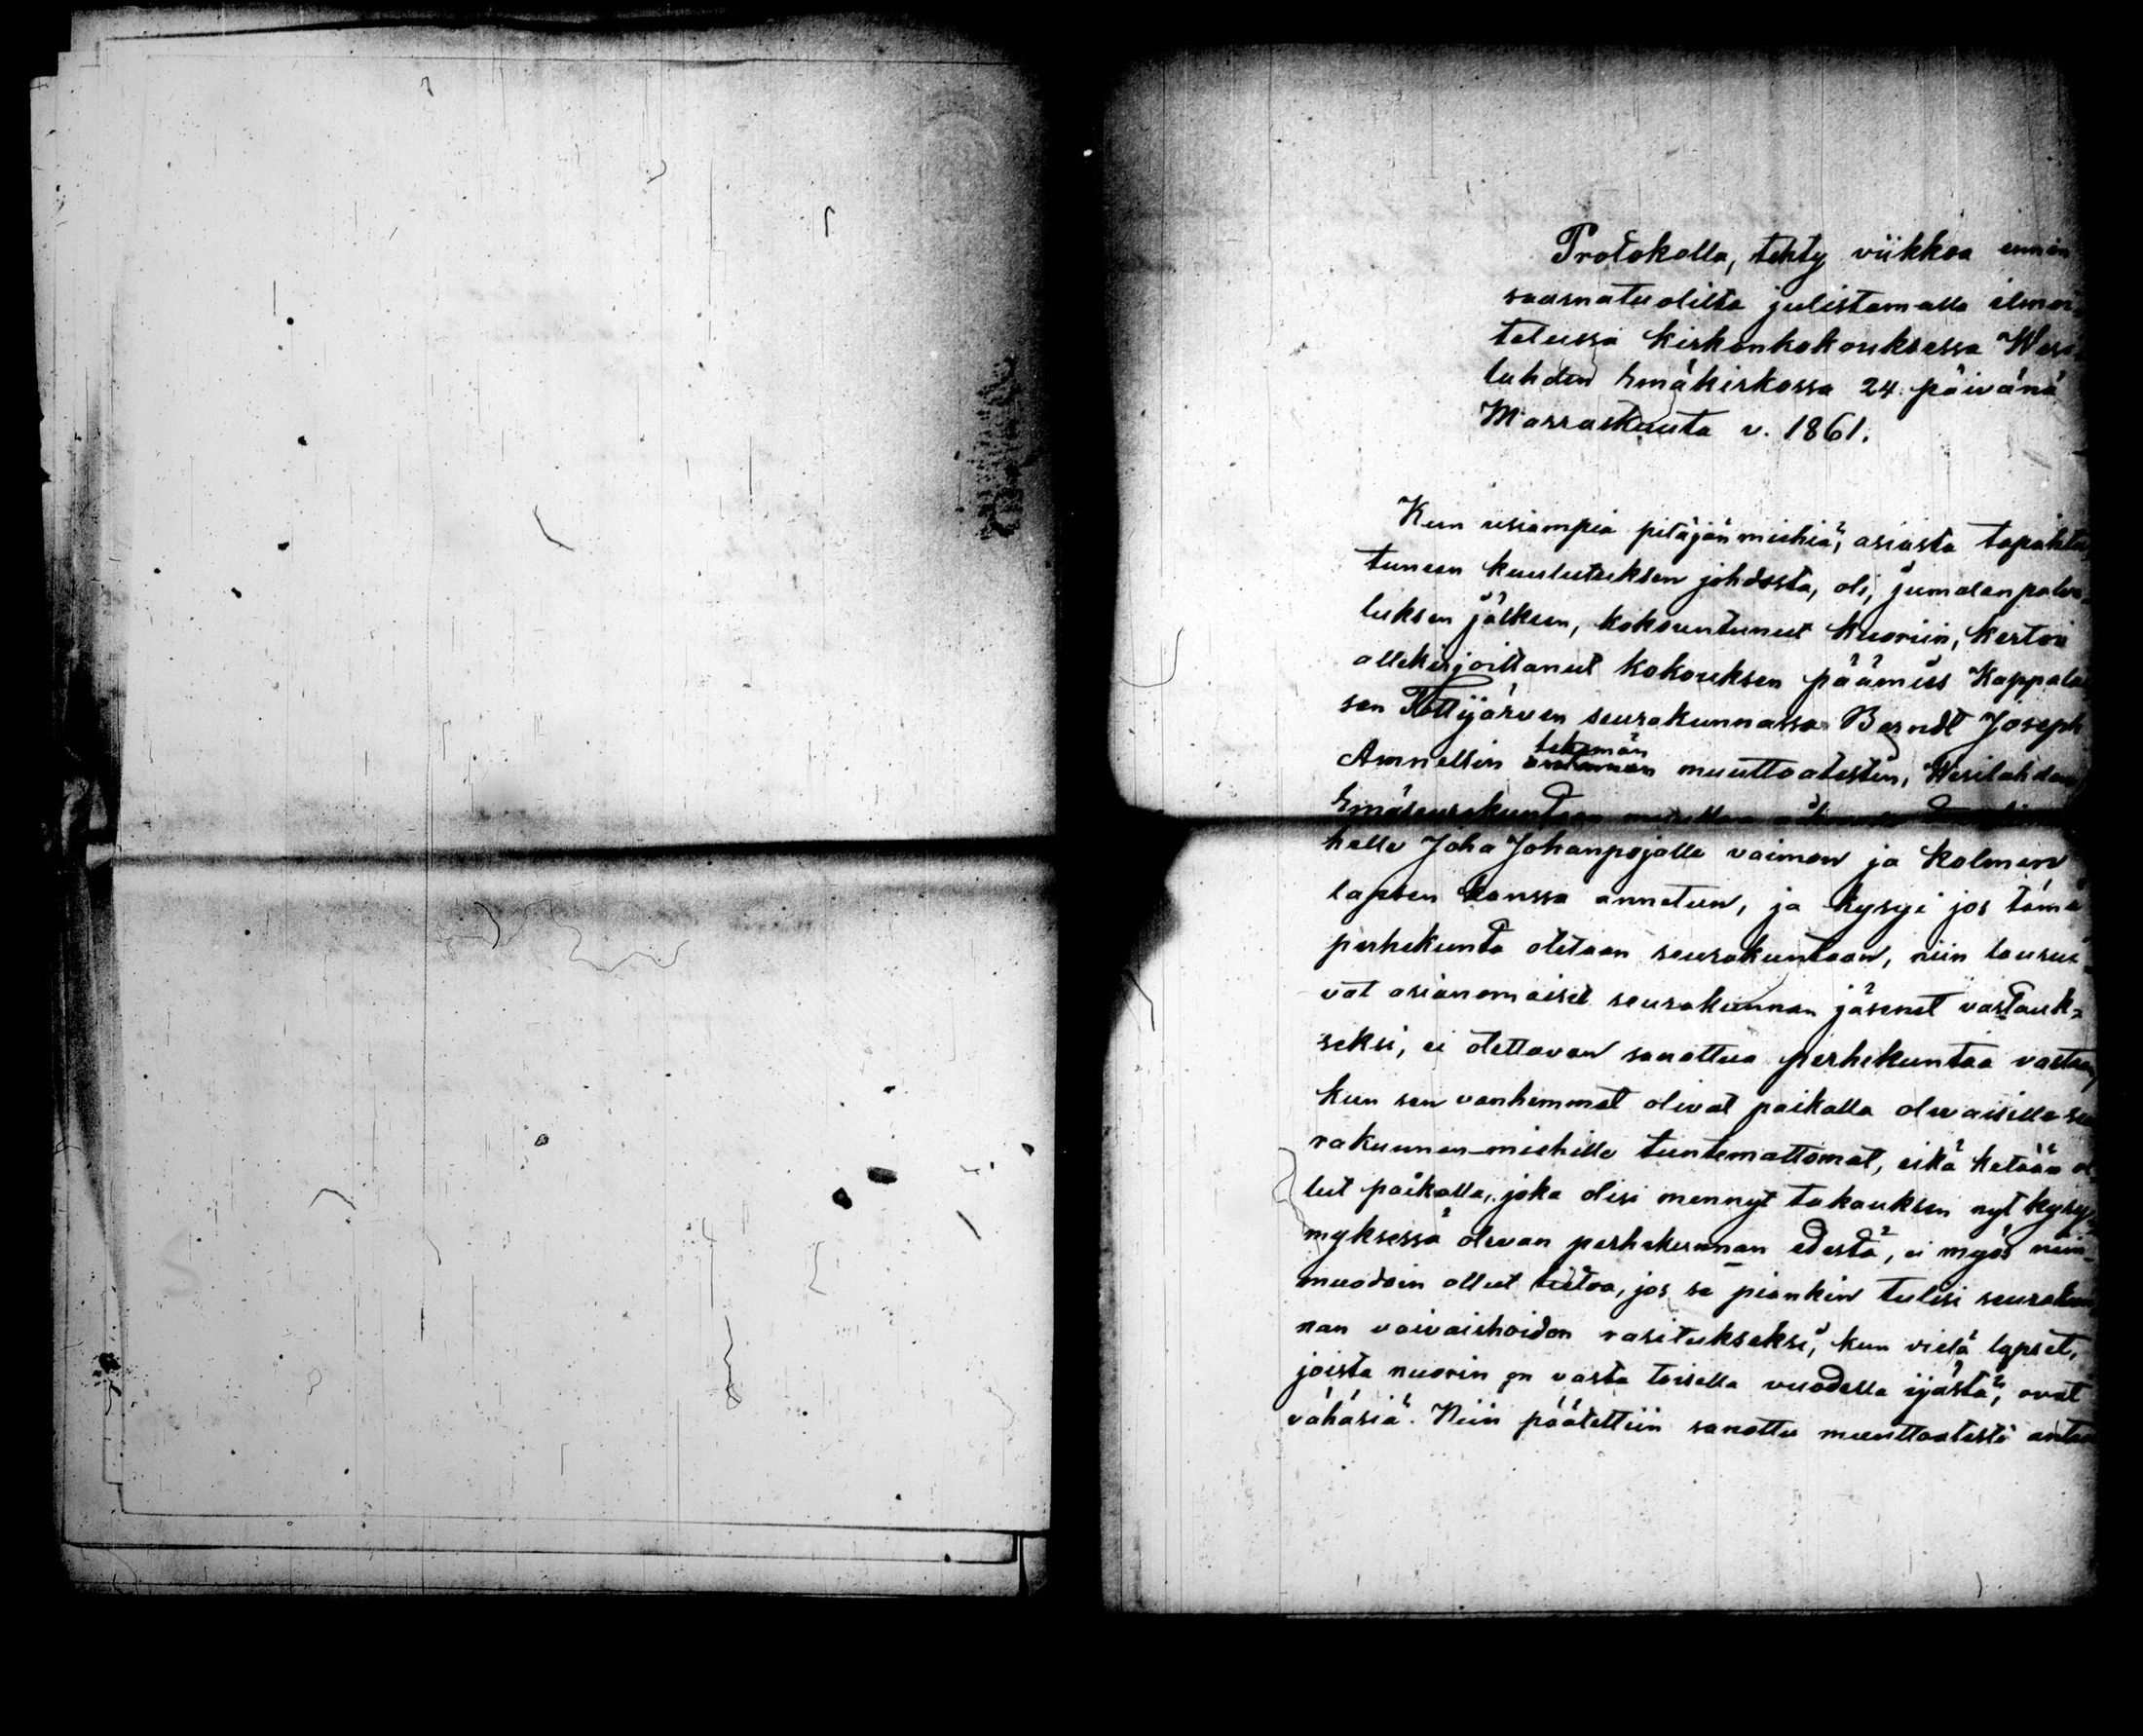 Protokolla, tehty viikkoa ennen
saarnatuolilta julistamalla ilmoi-
telussa kirkonkokouksessa Wesi-
lahden Emäkirkossa 24 päivänä
Marraskuuta v. 1861.
Kun usiampia pitäjän miehiä, asiasta tapahtu-
tuneen kuulutuksen johdosta, oli, jumalanpalve-
luksen jälkeen, kokountunut kuoriin, kertoi
allekirjoittanut kokouksen päämies Kappalai-
sen Tottijärven seurakunnassa Berndt Joseph
Amnellin tekemän muuttoatestin, Wesilahden
Emäseurakuntaan
helle Joha Johanpojalle vaimon ja kolmen
lapsen kanssa annetun, ja kysyi jos tämä
perhekunta otetaan seurakuntaan, niin lausui-
vat asianomaiset seurakunnan jäsenet vastauk-
seksi, ei otettavan sanottua perhekuntaa vastaan,
kun sen vanhemmat olivat paikalla olevaisille seu-
rakunnan-miehille tuntemattomat, eikä ketään ol-
lut paikalla, joka olisi mennyt takauksen nyt kysy-
myksessä olevan perhekunnan edestä, ei myös niin-
muodoin ollut tietoa, jos se piankin tulisi seurakun-
nan vaivaishoidon rasitukseksi, kun vielä lapset,
joista nuorin on vasta toisella vuodella ijästä, ovat
vähäsiä. Niin päätettiin sanottu muuttoatesti antaa